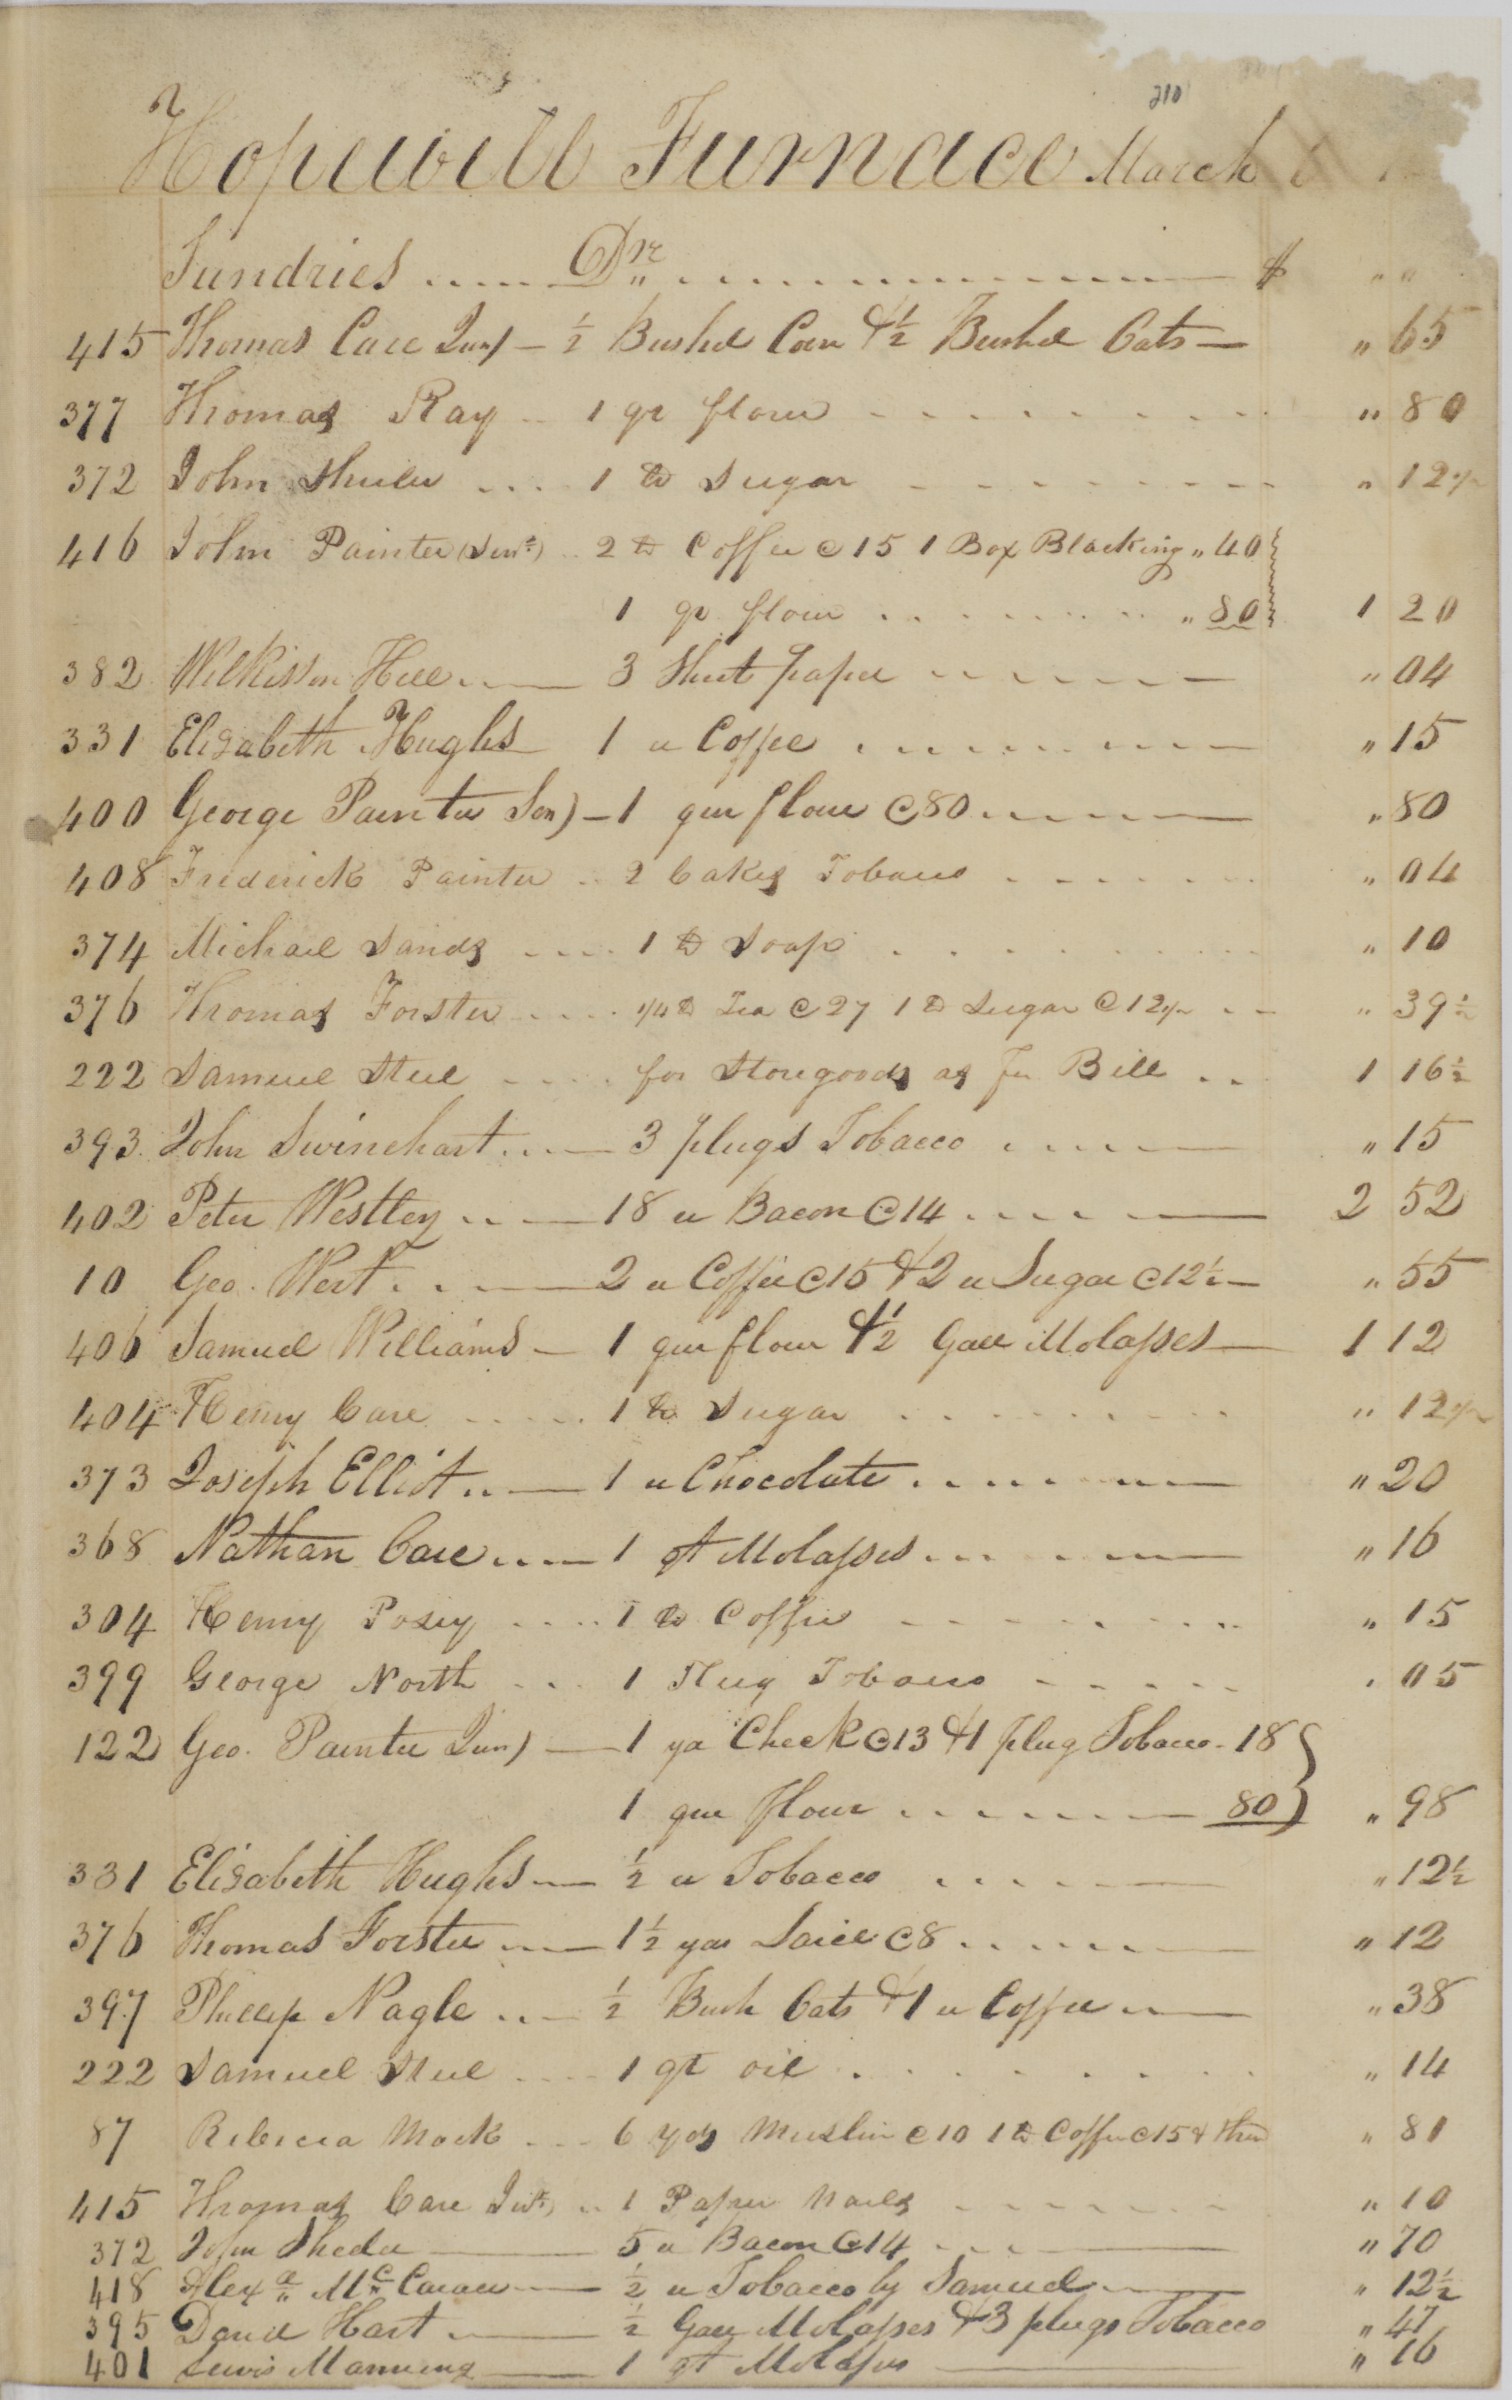 210
Hopewell Furnace March
Sundries ..... Dr ............... $ " "
415 Thomas Care Jun) — ½ Bushel Corn & ½ Bushel Oats — " 65
377 Thomas Ray .. 1 qr flour - - - - - - - " 80
372 John Sheeler .... 1 lb Sugar - - - - - - - " 12½
416 John Painter (Senr) .. 2 lb Coffee @ 15 1 Box Blacking " 40
1 qr flour . . . . . . . " 80 1 20
382 Wilkisson Hill ..— 3 Sheet paper ......— " 04
331 Elisabeth Hughs 1 " Coffee .......— " 15
400 George Painter Sen) — 1 qur flour @ 80 .....— " 80
408 Frederick Painter .. 2 Cakes Tobacco - - - - - - " 04
374 Michael Sands .... 1 lb Soap . . . . . . . " 10
376 Thomas Forster ..... 1/4 lb Tea @ 27 1 lb Sugar @ 12½ - - - " 39½
222 Samuel Steel .... for Storegoods as pr Bill .. 1 16½
393 John Swinehart ...— 3 plugs Tobacco ....— " 15
402 Peter Westley ..— 18 " Bacon @ 14 ....— 2 52
10 Geo. West . . .— 2 " Coffee @ 15 & 2 " Sugar @ 12½ — " 55
406 Samuel Williams — 1 qur flour & ½ Gall Molasses — 1 12
404 Henry Care ..... 1 lb Sugar . . . . . . . " 12½
373 Joseph Elliot ..— 1 " Chocolate .......— " 20
368 Nathan Care ...— 1 qt Molasses ......— " 16
304 Henry Posey .... 1 lb Coffee - - - - - - " 15
399 George North ... 1 Plug Tobacco - - - - - " 05
122 Geo. Painter Jun) — 1 ya Check @ 13 & 1 plug Tobacco - 18
1 qur flour .......— 80 " 98
331 Elisabeth Hughs .— ½ " Tobacco ....— " 12½
376 Thomas Forster ..— 1½ yar Laice @ 8 .....— " 12
397 Phillip Nagle ..— ½ Bush Oats & 1 " Coffee .— " 38
222 Samuel Steel .... 1 qt oil . . . . . . . " 14
87 Rebecca Mock ... 6 yds Muslin @ 10 1 lb Coffee @ 15 & thre " 81
415 Thomas Care Junr) .. 1 Paper Nails - - - - - - " 10
372 John Sheeler — 5 " Bacon @ 14 ...— " 70
418 Alexa Mc — ½ " Tobacco by Samuel — " 12½
395 David Hart .— ½ Gall Molasses & 3 plugs Tobacco " 47
401 Lewis Manning — 1 qt Molasses — " 16